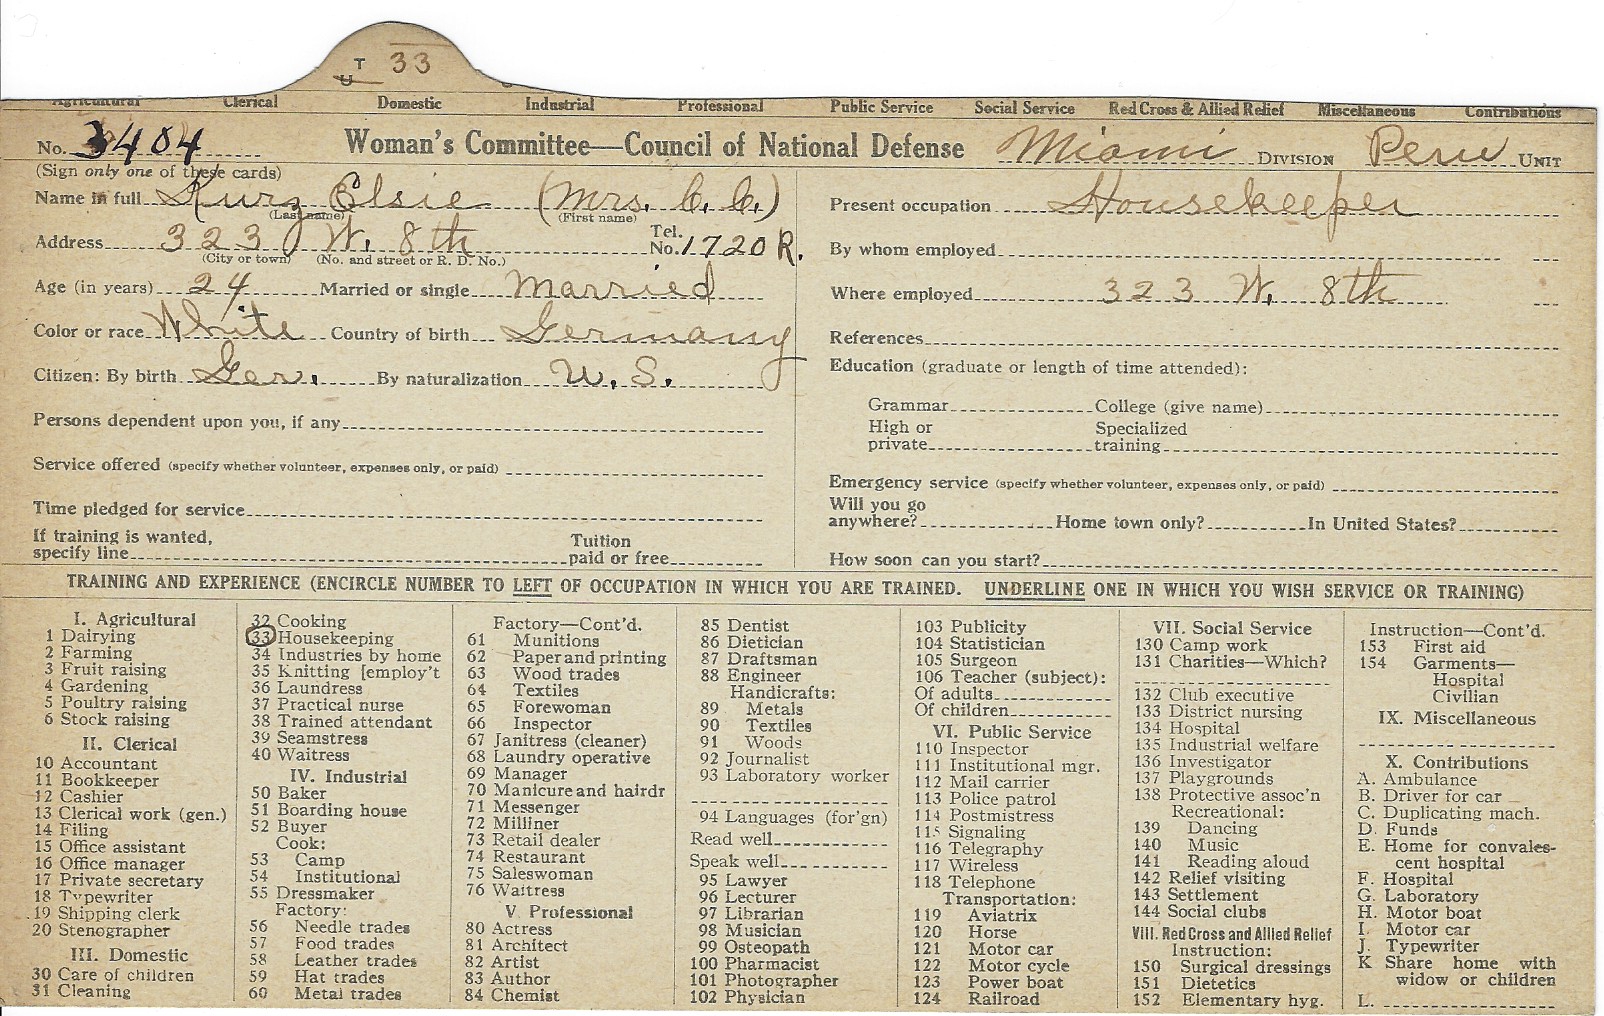 T 33
U
Agricultural Clerical Domestic Industrial Professional Public Service Social Service Red Cross & Allied Relief Miscellaneous Contributions
No. 3404 Woman's Committee—Council of National Defense Miami DIVISION Peru UNIT
(Sign only one of these cards)
Name in full Kurz Elsie (Mrs. C. C.)
(Last name) (First name)
Address 323 W. 8th Tel. No. 1720 R.
(City or town) (No. and street or R. D. No.)
Age (in years) 24 Married or single Married
Color or race White Country of birth Germany
Citizen: By birth Ger. By naturalization U. S.
Persons dependent upon you, if any
Service offered (specify whether volunteer, expenses only, or paid)
Time pledged for service
If training is wanted,
specify line Tuition paid or free
Present occupation Housekeeper
By whom employed
Where employed 323 W. 8th
References
Education (graduate or length of time attended):
Grammar College (give name)
High or private Specialized training
Emergency service (specify whether volunteer, expenses only, or paid)
Will you go
anywhere? Home town only? In United States?
How soon can you start?
TRAINING AND EXPERIENCE (ENCIRCLE NUMBER TO LEFT OF OCCUPATION IN WHICH YOU ARE TRAINED. UNDERLINE ONE IN WHICH YOU WISH SERVICE OR TRAINING)
I. Agricultural
1 Dairying
2 Farming
3 Fruit raising
4 Gardening
5 Poultry raising
6 Stock raising
II. Clerical
10 Accountant
11 Bookkeeper
12 Cashier
13 Clerical work (gen.)
14 Filing
15 Office assistant
16 Office manager
17 Private secretary
18 Typewriter
19 Shipping clerk
20 Stenographer
III. Domestic
30 Care of children
31 Cleaning
32 Cooking
33 Housekeeping
34 Industries by home
35 Knitting [employ't
36 Laundress
37 Practical nurse
38 Trained attendant
39 Seamstress
40 Waitress
IV. Industrial
50 Baker
51 Boarding house
52 Buyer
Cook:
53 Camp
54 Institutional
55 Dressmaker
Factory:
56 Needle trades
57 Food trades
58 Leather trades
59 Hat trades
60 Metal trades
Factory—Cont'd.
61 Munitions
62 Paper and printing
63 Wood trades
64 Textiles
65 Forewoman
66 Inspector
67 Janitress (cleaner)
68 Laundry operative
69 Manager
70 Manicure and hairdr
71 Messenger
72 Milliner
73 Retail dealer
74 Restaurant
75 Saleswoman
76 Waitress
V. Professional
80 Actress
81 Architect
82 Artist
83 Author
84 Chemist
85 Dentist
86 Dietician
87 Draftsman
88 Engineer
Handicrafts:
89 Metals
90 Textiles
91 Woods
92 Journalist
93 Laboratory worker
94 Languages (for'gn)
Read well
Speak well
95 Lawyer
96 Lecturer
97 Librarian
98 Musician
99 Osteopath
100 Pharmacist
101 Photographer
102 Physician
103 Publicity
104 Statistician
105 Surgeon
106 Teacher (subject):
Of adults
Of children
VI. Public Service
110 Inspector
111 Institutional mgr.
112 Mail carrier
113 Police patrol
114 Postmistress
115 Signaling
116 Telegraphy
117 Wireless
118 Telephone
Transportation:
119 Aviatrix
120 Horse
121 Motor car
122 Motor cycle
123 Power boat
124 Railroad
VII. Social Service
130 Camp work
131 Charities—Which?
132 Club executive
133 District nursing
134 Hospital
135 Industrial welfare
136 Investigator
137 Playgrounds
138 Protective assoc'n
Recreational:
139 Dancing
140 Music
141 Reading aloud
142 Relief visiting
143 Settlement
144 Social clubs
VIII. Red Cross and Allied Relief
Instruction:
150 Surgical dressings
151 Dietetics
152 Elementary hyg.
Instruction—Cont'd.
153 First aid
154 Garments—
Hospital
Civilian
IX. Miscellaneous
X. Contributions
A. Ambulance
B. Driver for car
C. Duplicating mach.
D. Funds
E. Home for convales-
cent hospital
F. Hospital
G. Laboratory
H. Motor boat
I. Motor car
J. Typewriter
K Share home with
widow or children
L.